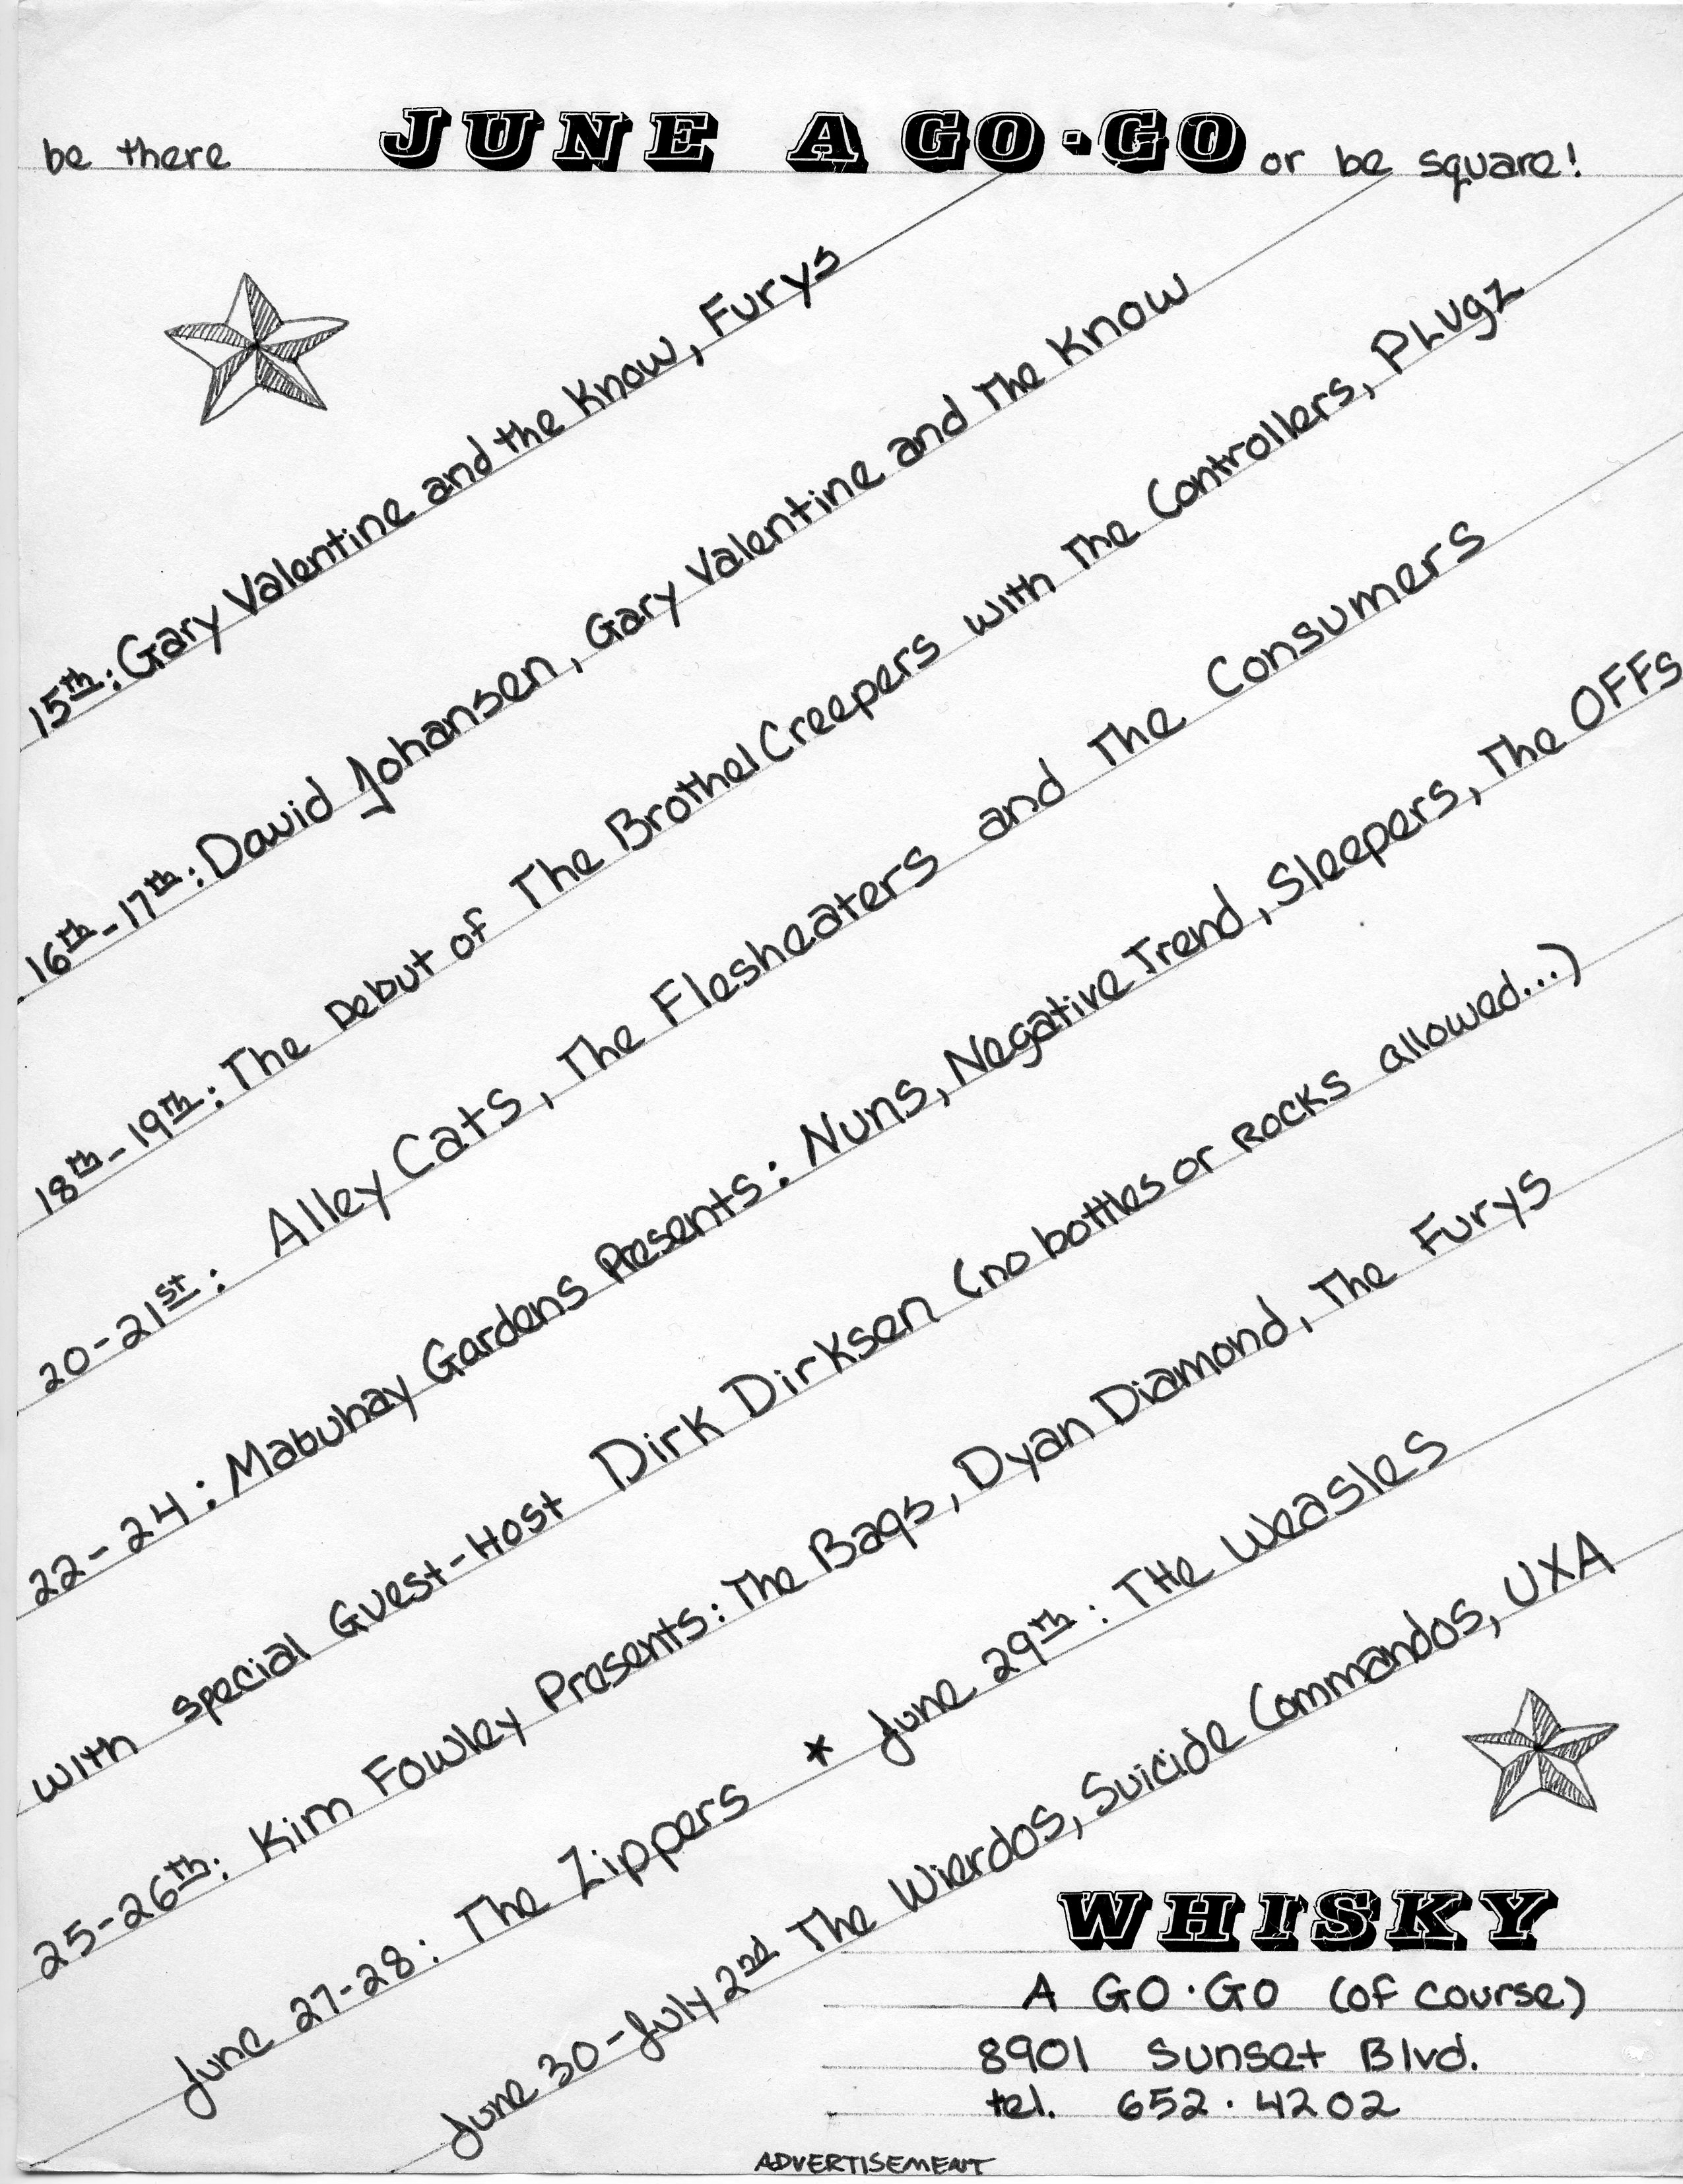 be there JUNE A GO·GO or be square!
15th: Gary Valentine and the Know, Furys
16th-17th: David Johansen, Gary Valentine and The Know
18th-19th: The Debut of The Brothel Creepers with The Controllers, PLugz
20-21st: Alley Cats, The Flesheaters and The Consumers
22-24: Mabuhay Gardens Presents: Nuns, Negative Trend, Sleepers, The OFFs
with special Guest-Host Dirk Dirksen (no bottles or ROCKS allowed...)
25-26th: Kim Fowley Presents: The Bags, Dyan Diamond, The Furys
June 27-28: The Zippers * June 29th: THe Weasles
June 30-July 2nd The Wierdos, Suicide Commandos, UXA
WHISKY
A GO·GO (of course)
8901 Sunset Blvd.
tel. 652·4202
ADVERTISEMENT